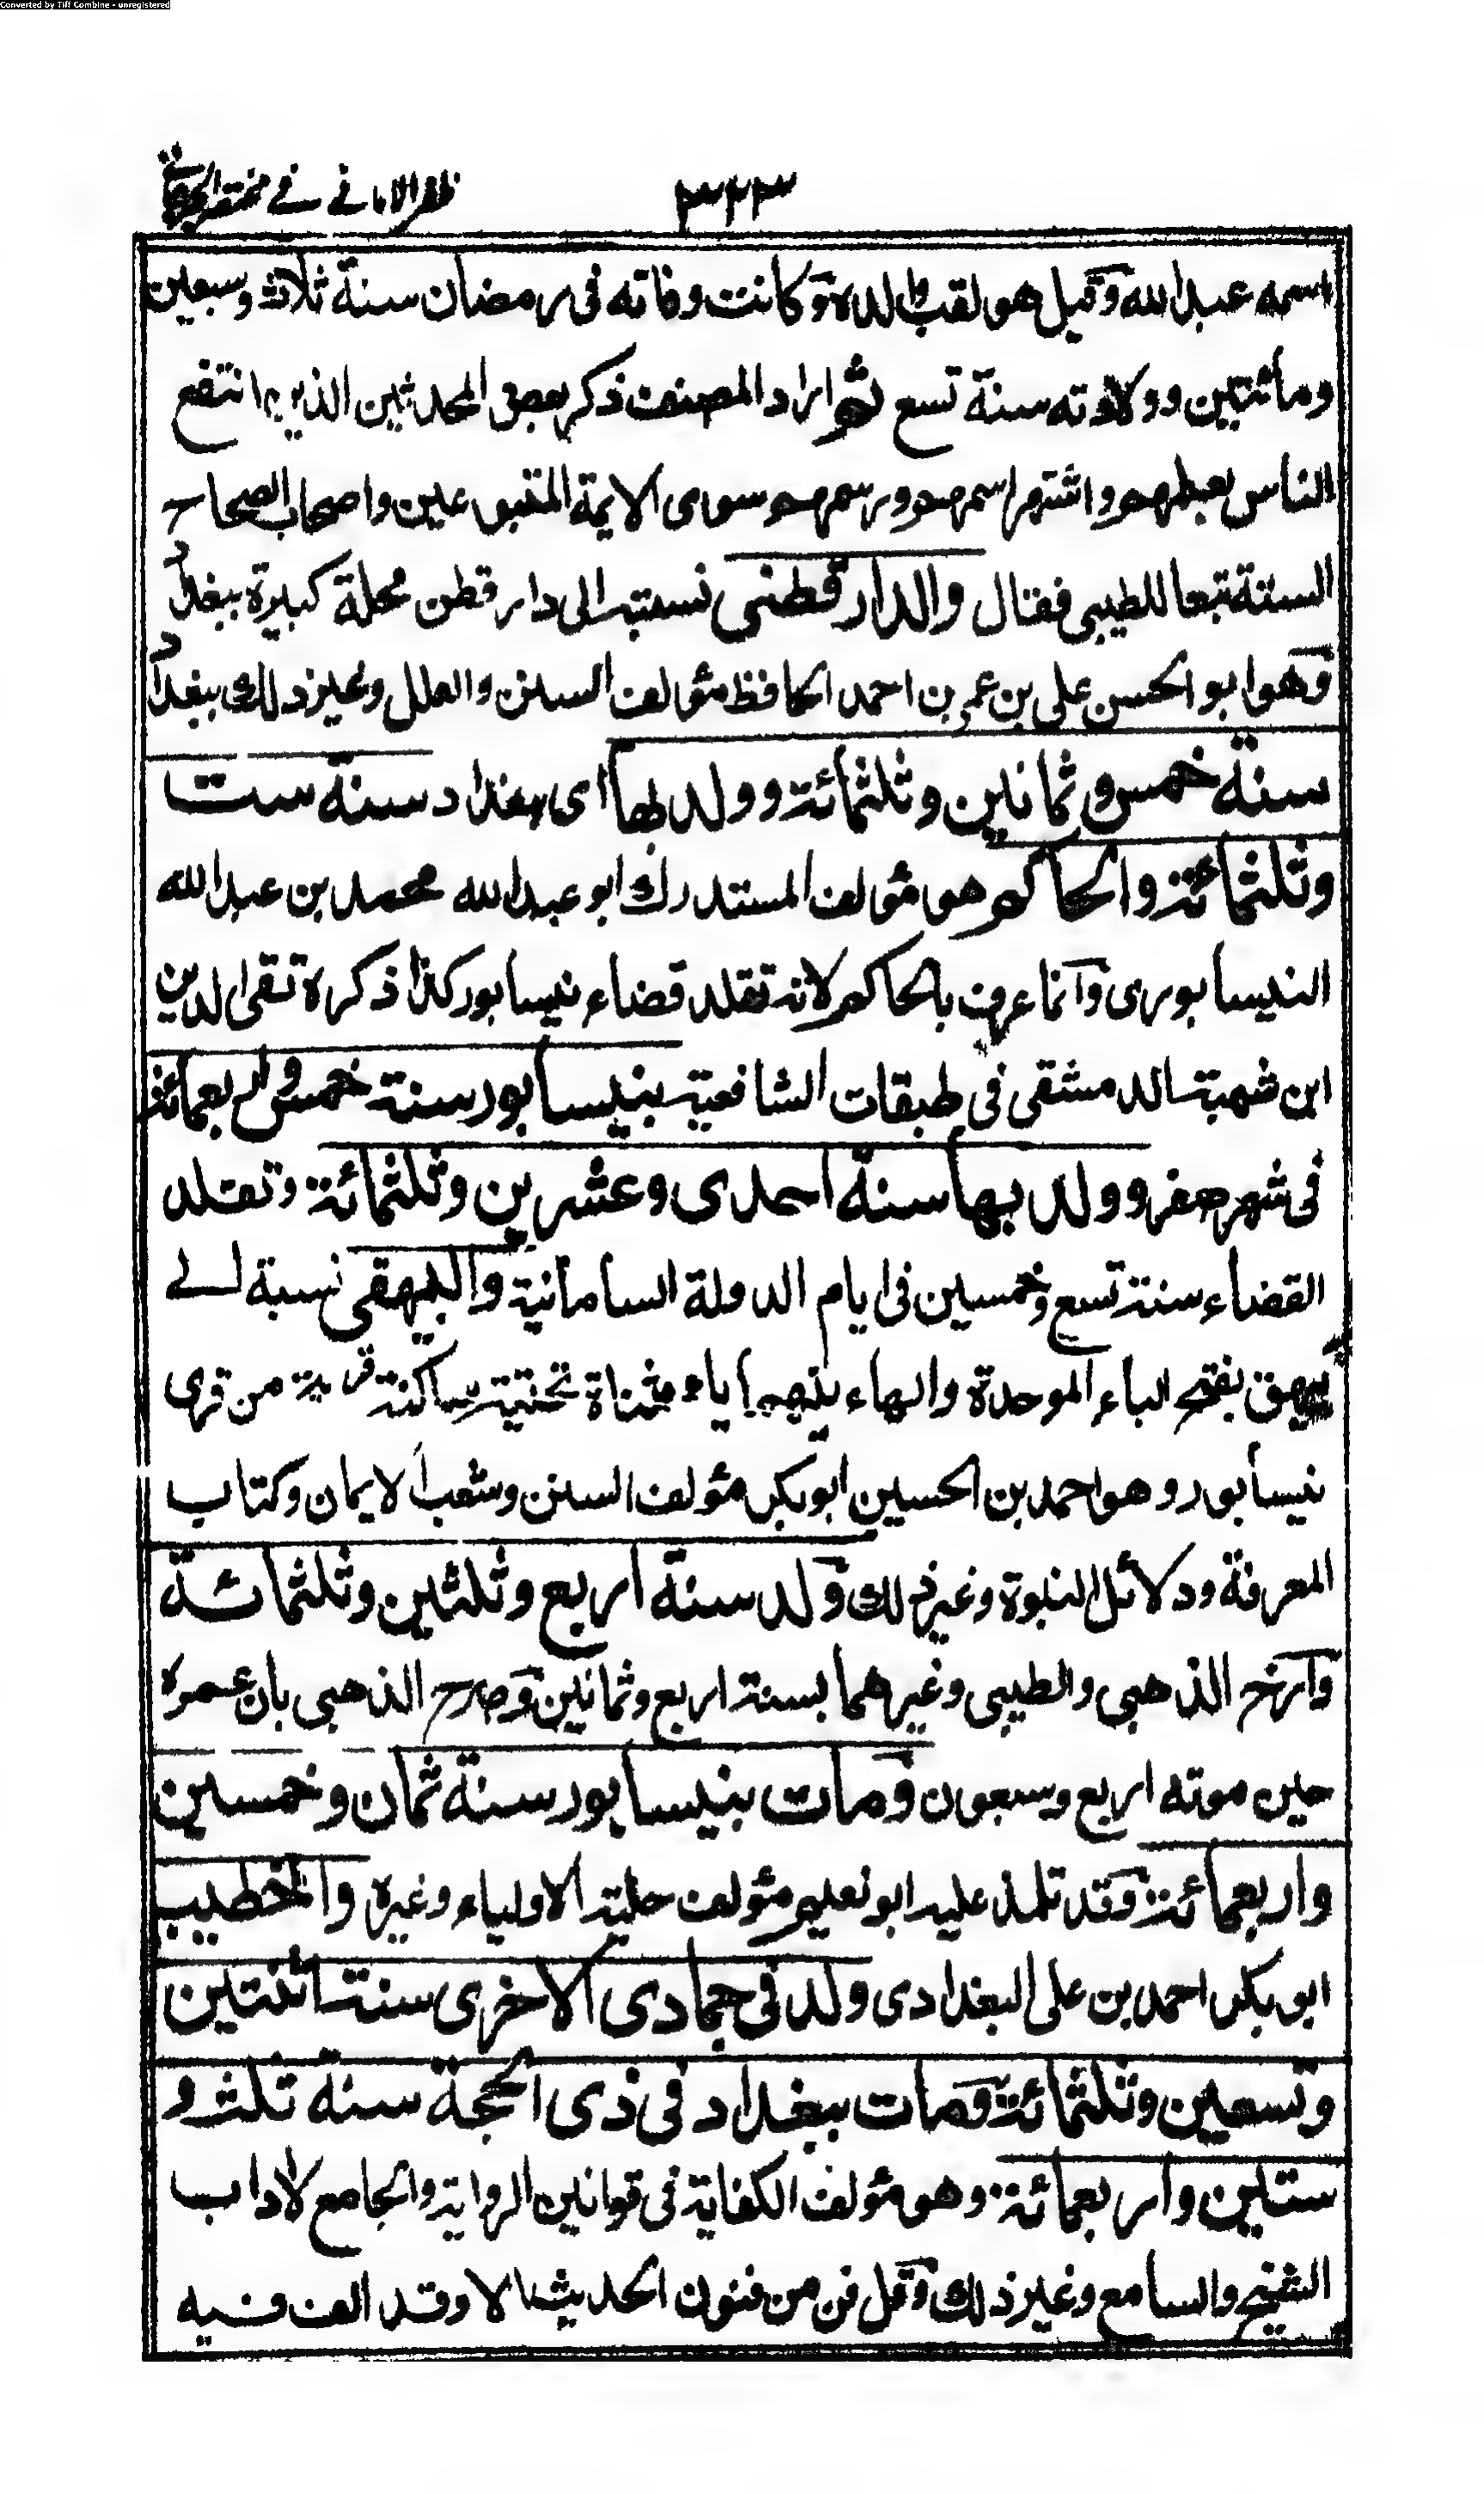 Converted by Tiff Combine - unregistered
ظفر الامانى فے مختصر الجرجانى
٣٢٣
اسمه عبد الله وقيل هو لقب والده وكانت وفاته فى رمضان سنة ثلاث وسبعين
ومائتين وولادته سنة تسع ثم اراد المصنف ذكر بعض المحدثين الذين انتفع
الناس بعلمهم واشتهر اسمهم ورسمهم سوى الايمة المتبوعين واصحاب الصحاح
الستة تبعا للطيبى فقال والدارقطنى نسبته الى دار قطن محلة كبيرة ببغداد
وهو ابو الحسن على بن عمر بن احمد الحافظ مؤلف السنن والعلل وغير ذلك ببغداد
سنة خمس وثمانين وثلثمائة وولد بها اى ببغداد سنة ست
وثلثمائة والحاكم هو مؤلف المستدرك ابو عبد الله محمد بن عبد الله
النيسابورى وانما عرف بالحاكم لانه تقلد قضاء نيسابور كذا ذكره تقى الدين
ابن شهبة الدمشقى فى طبقات الشافعية بنيسابور سنة خمس واربعمائة
فى شهر صفر وولد بها سنة احدى وعشرين وثلثمائة وتقلد
القضاء سنة تسع وخمسين فى ايام الدولة السامانية والبيهقى نسبة الے
بيهق بفتح الباء الموحدة والهاء بينهما ياء مثناة تحتية ساكنة قرية من قرى
نيسابور وهو احمد بن الحسين ابو بكر مؤلف السنن وشعب الايمان وكتاب
المعرفة ودلائل النبوة وغير ذلك ولد سنة اربع وثلثين وثلثمائة
وارخ الذهبى والطيبى وغيرهما بسنة اربع وثمانين وصرح الذهبى بان عمره
حين موته اربع وسبعون ومات بنيسابور سنة ثمان وخمسين
واربعمائة وقد تلمذ عليه ابو نعيم مؤلف حلية الاولياء وغيره والخطيب
ابو بكر احمد بن على البغدادى ولد فى جمادى الاخرى سنة اثنتين
وتسعين وثلثمائة ومات ببغداد فى ذى الحجة سنة ثلث و
ستين واربعمائة وهو مؤلف الكفاية فى قوانين الرواية والجامع لاداب
الشيخ والسامع وغير ذلك وقل فن من فنون الحديث الا وقد الف فيه